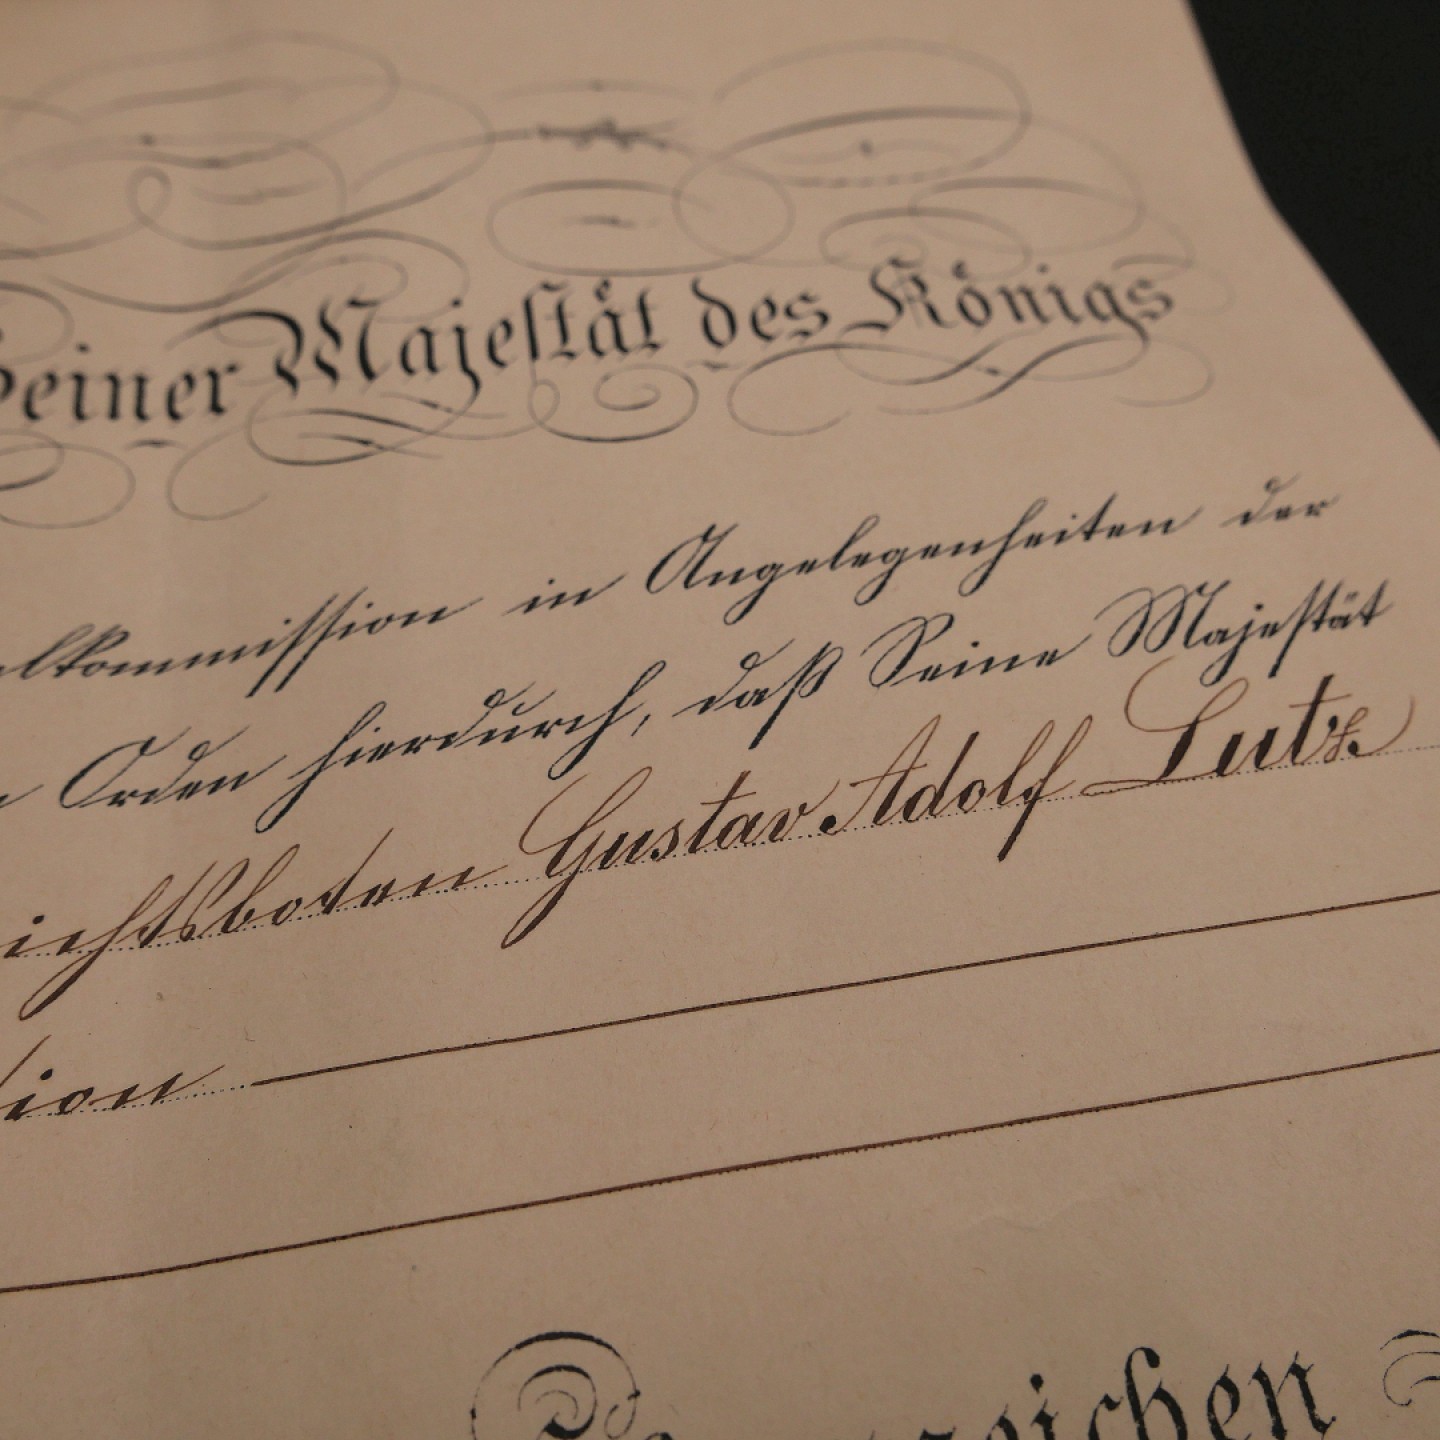 Seiner Majestät des Königs
lkommission in Angelegenheiten der
n Orden hierdurch, daß Seine Majestät
ichtsboten Gustav Adolf Lutz
tion
zeichen